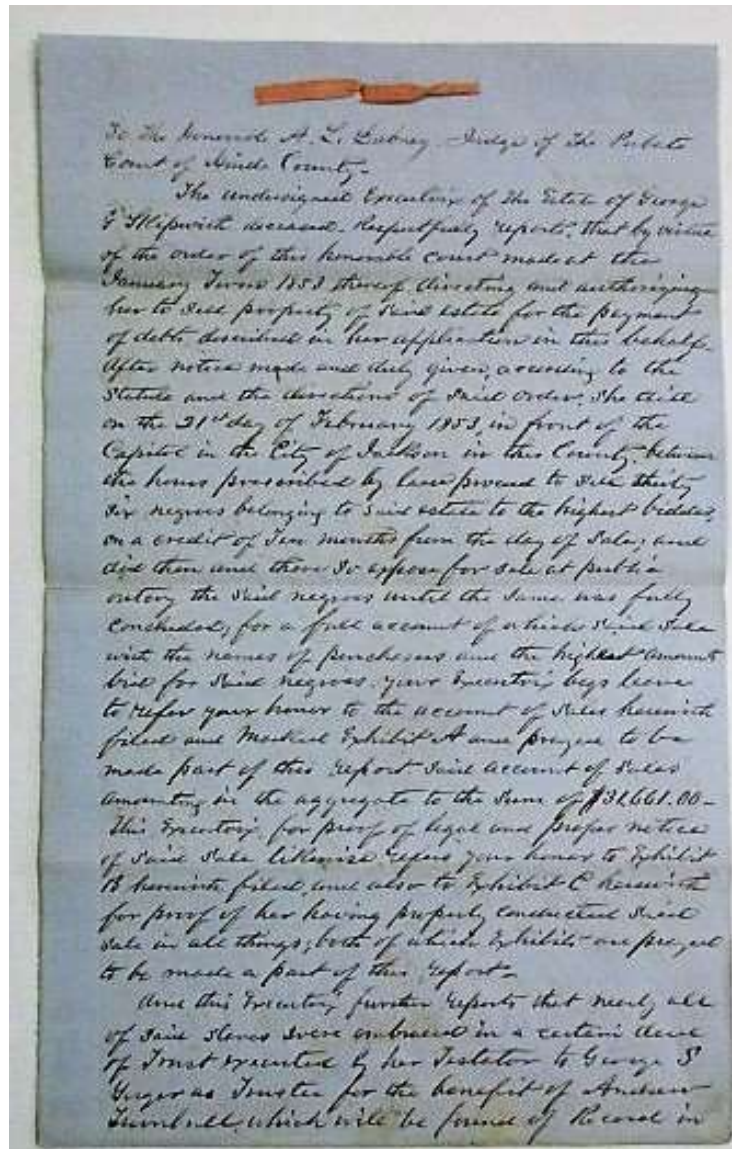 To The Honorable A. L. Dabney Judge of The Probate
Court of Hinds County.
The undersigned Executrix of The Estate of George
G Skipwith deceased. Respectfully reports, that by virtue
of the order of this honorable court made at the
January Term 1853 thereof directing and authorizing
her to sell property of said estate for the payment
of debts described in her application in this behalf.
After notice made and duly given, according to the
Statute and the directions of said order, she did
on the 21st day of February 1853, in front of the
Capitol in the City of Jackson in this County, between
the hours prescribed by law proceed to sell thirty
six negroes belonging to said estate to the highest bidder,
on a credit of Ten months from the day of sale, and
did then and there so expose for sale at public
outcry the said negroes until the same was fully
concluded, for a full account of which said sale
with the names of purchasers and the highest amounts
bid for said negroes, your Executrix begs leave
to refer your honor to the account of sales herewith
filed and marked Exhibit A and prayed to be
made part of this report said account of sales
amounting in the aggregate to the sum of $31,661.00 -
This Executrix for proof of legal and proper notice
of said sale likewise refers your honor to Exhibit
B herewith filed, and also to Exhibit C herewith
for proof of her having properly conducted said
sale in all things, both of which Exhibits are prayed
to be made a part of this report.
And this Executrix further reports that nearly all
of said slaves were embraced in a certain deed
of Trust executed by her Testator to George S
Yerger as Trustee for the benefit of Andrew
Turnbull, which will be found of Record in